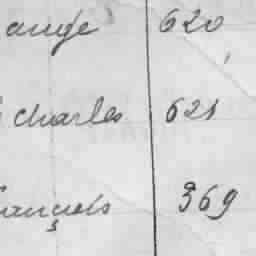 ange 620
charles 621
françois 369